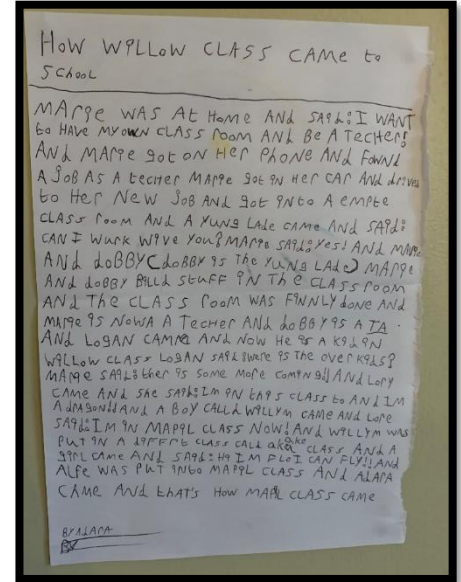 How WILLOW CLASS CAME to
SCHooL
MARGE WAS At Home AND SAId: I WANT
to HAVE MY OWN CLASS room AND Be A TecHer!
AND MARGE got oN Her PHoNe AND FowNd
A JoB AS A tecHer MARGE got IN Her CAr ANd drives
to Her New JoB AND got INto A emPte
CLASS room AND A YuNg LAde CAme AND SAId:
CAN I Wurk WIVe You? MARGE SAId: Yes! AND MARGE
AND doBBY (doBBY IS THe YuNg LAde) MARGE
AND doBBY BILLd stuFF IN THe CLASS room
AND THe CLASS room WAS FINNLY done AND
MARGE IS NOW A TecHer AND doBBY IS A TA.
AND LoGAN CAMe AND Now He IS A KidIN
WILLow CLASS LoGAN SAId: were IS tHe over KidS?
MARGE SAId: tHer IS Some More comINg!! AND Lory
CAMe AND SHe SAId: Im IN tHIS CLASS to AND IM
A drAgoN!! AND A Boy CALLd WILLYm CAMe AND Lore
SAId: Im IN MAPIL CLASS NoW! AND WILLYm WAS
PUt IN A dIFFrt CLASS CALd CLASS AND A
gIrL CAMe AND SAId: HI I'M FLoI CAN FLY!! AND
ALFe WAS PUt INto MAPIL CLASS AND ALARA
CAme AND tHAt's HoW MAPL CLASS CAMe
BY ALARA